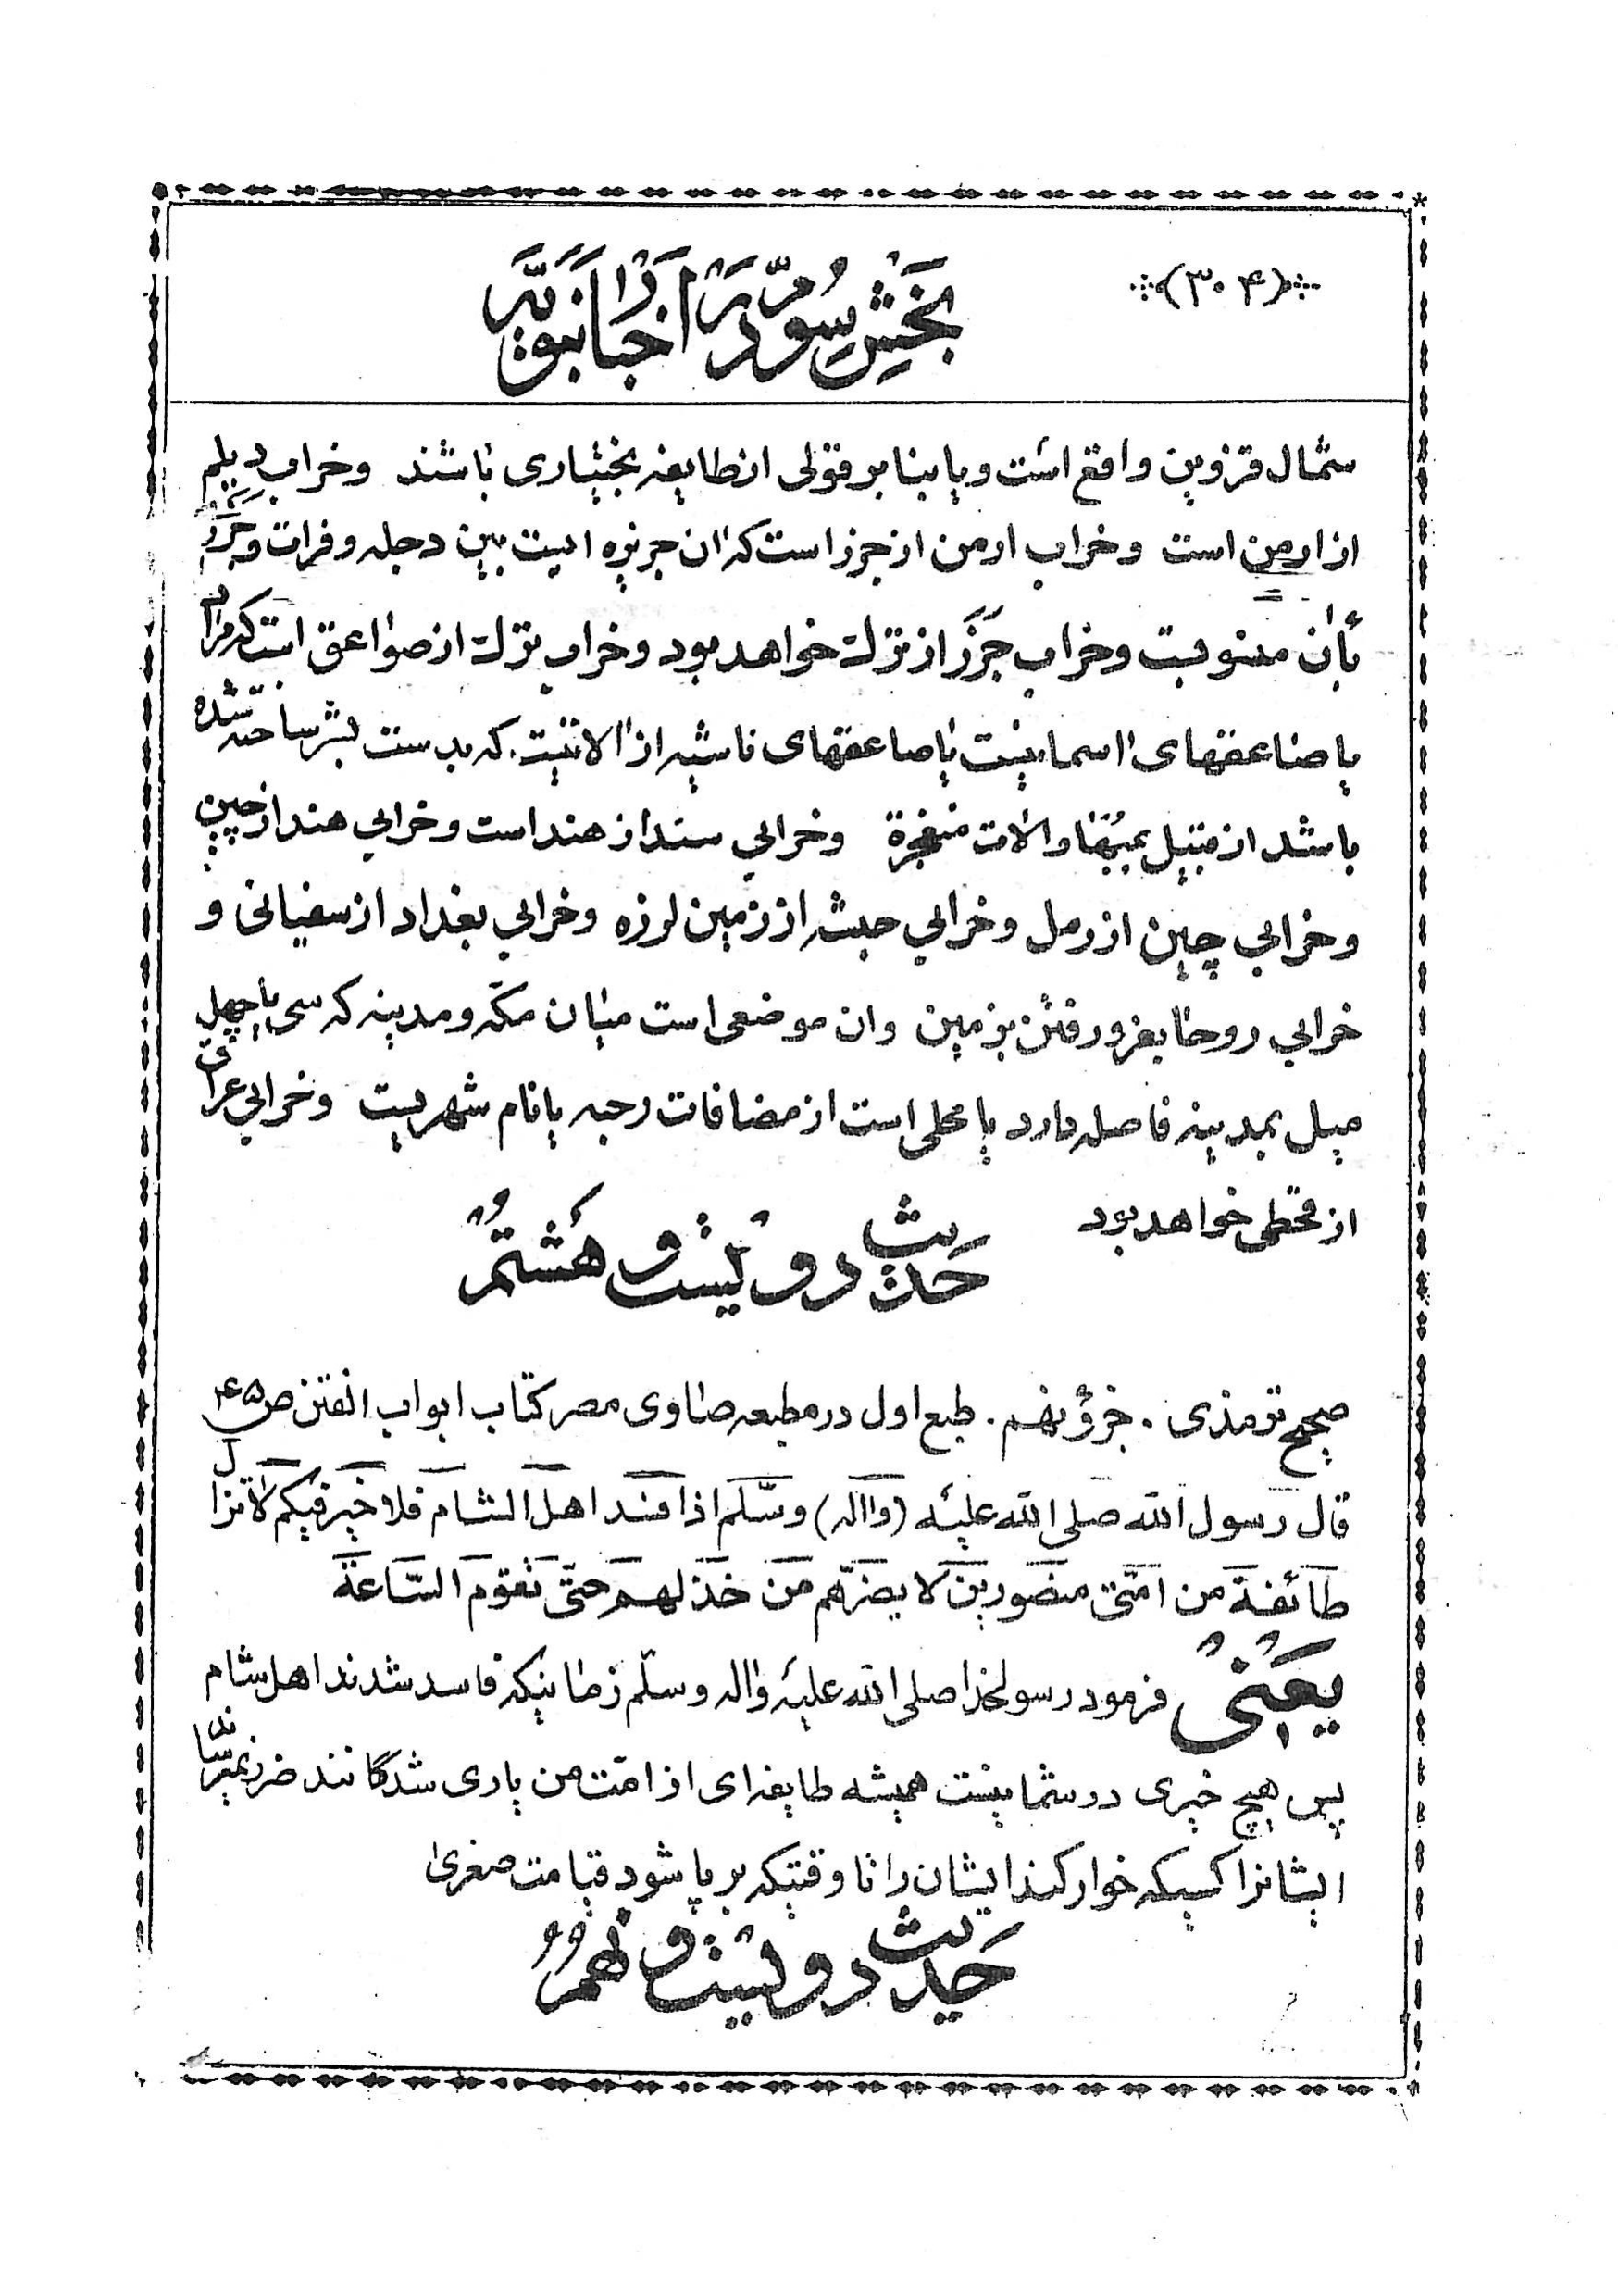 (۳۰۴)
بخش سوم در اخبار نبویه
شمال قزوین واقع است و یا بنا بر قولی از طایفه بختیاری باشند وخراب دیلم
از ارمن است وخراب ارمن از جرز است که ان جزیره ایست بین دجله و فرات و جرز
بأن منسوبست وخراب جَرَز از ترک خواهد بود وخراب ترک از صواعق است که مراد
یا صاعقهای اسمانیست یا صاعقهای ناشیه از الاتیست که بدست بشر ساخته شده
باشد از قبیل بمبها و الات منفجرة وخرابی سند از هند است وخرابی هند از چین
وخرابی چین از رمل وخرابی حبشه از زمین لرزه وخرابی بغداد از سفیانی و
خرابی روحا بفرو رفتن بزمین وان موضعی است میان مکّه و مدینه که سی یا چهل
میل بمدینه فاصله دارد یا محلی است از مضافات رحبه یا نام شهریست وخرابی عراق
از قحطی خواهد بود
حدیث دویست و هشتم
صحیح ترمذی . جزؤ نهم . طبع اول در مطبعه صاوی مصر کتاب ابواب الفتن ص ۴۵
قال رسول الله صلی الله علیه (واله) وسلّم اذا فسد اهل الشام فلا خیر فیکم لا تزال
طائفة من امّتی منصورین لا یضرّهم من خذلهم حتّی تقوم السّاعة
یعنی فرمود رسولخدا صلی الله علیه واله وسلّم زمانیکه فاسد شدند اهل شام
پس هیچ خیری در شما نیست همیشه طایفه‌ای از امّت من یاری شدگانند ضرر نمیرساند
ایشانرا کسیکه خوار کند ایشان را تا وقتیکه بر پا شود قیامت صغری
حدیث دویست و نهم